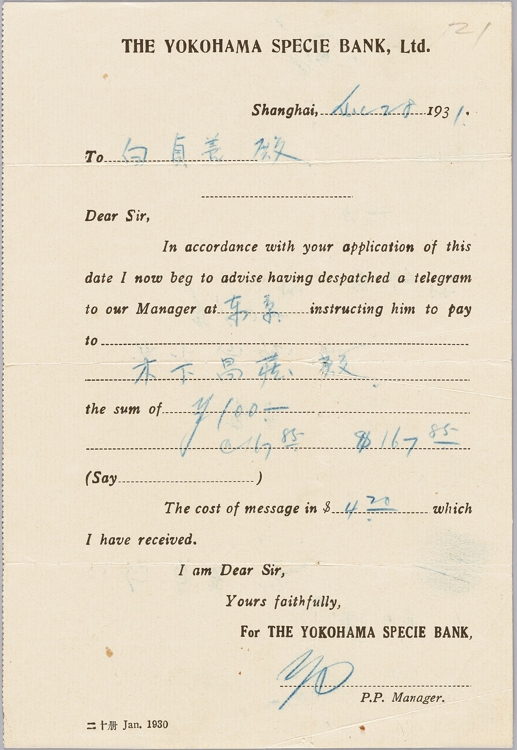 21
THE YOKOHAMA SPECIE BANK, Ltd.
Shanghai, Dec 28 1931.
To 白貞善 殿
Dear Sir,
In accordance with your application of this
date I now beg to advise having despatched a telegram
to our Manager at 東京 instructing him to pay
to
木下昌蔵 殿
the sum of ¥100.—
@ 167 85 $167 85
(Say )
The cost of message in $ 4 20 which
I have received.
I am Dear Sir,
Yours faithfully,
For THE YOKOHAMA SPECIE BANK,
P.P. Manager.
二十册 Jan. 1930